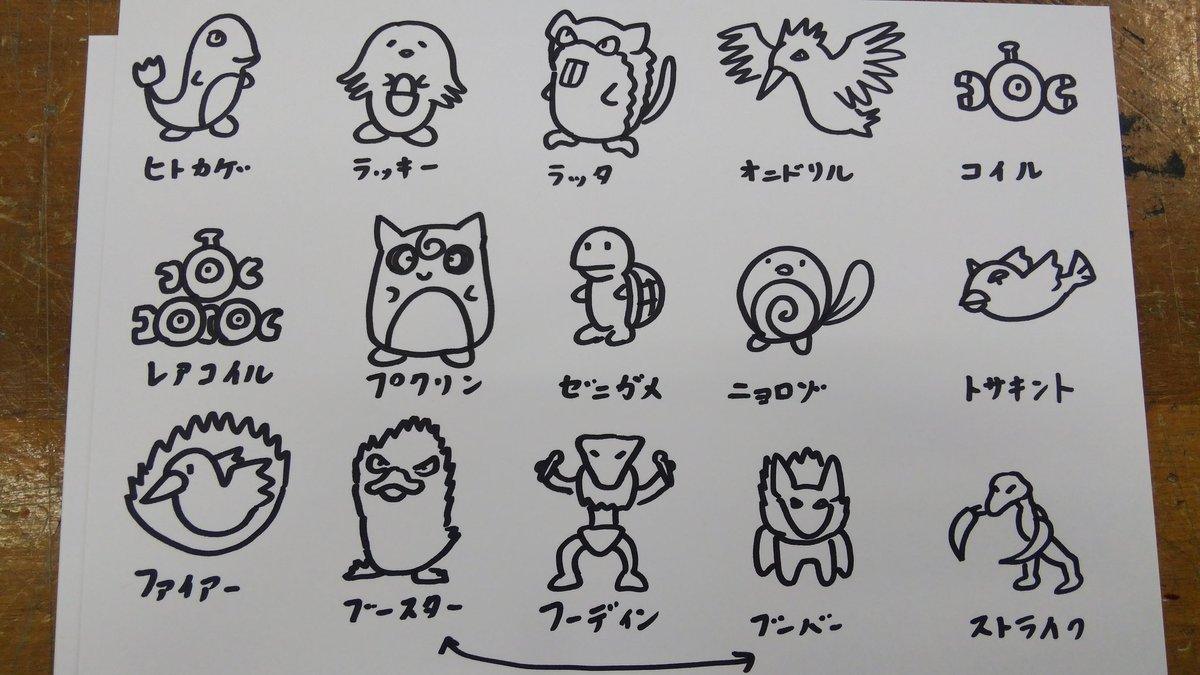 ヒトカゲ
ラッキー
ラッタ
オニドリル
コイル
レアコイル
プクリン
ゼニガメ
ニョロゾ
トサキント
ファイアー
ブースター
フーディン
ブーバー
ストライク